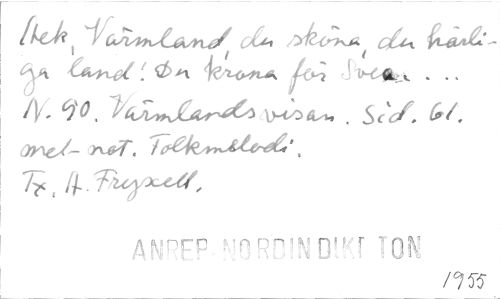 Ack, Värmland, du sköna, du härli-
ga land! Du krona för Svea . . .
N. 90. Värmlandsvisan. Sid. 61.
mel-not. Folkmelodi.
Tx. A. Fryxell.
ANREP-NORDIN DIKT TON
1955